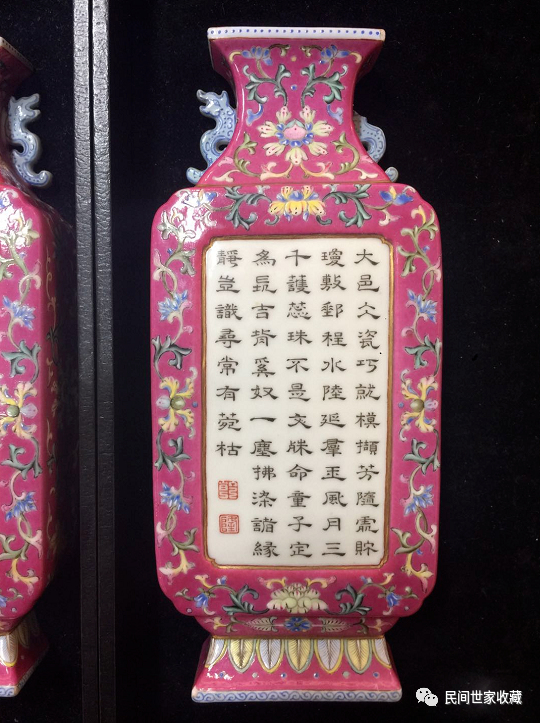 大邑仌瓷巧就模擷芳隨處貯
瓊敷郵程水陸延羣玉風月三
千護蕊珠不是文殊命童子定
為長吉背奚奴一塵拂滌諸緣
靜豈識尋常有菀枯
民间世家收藏